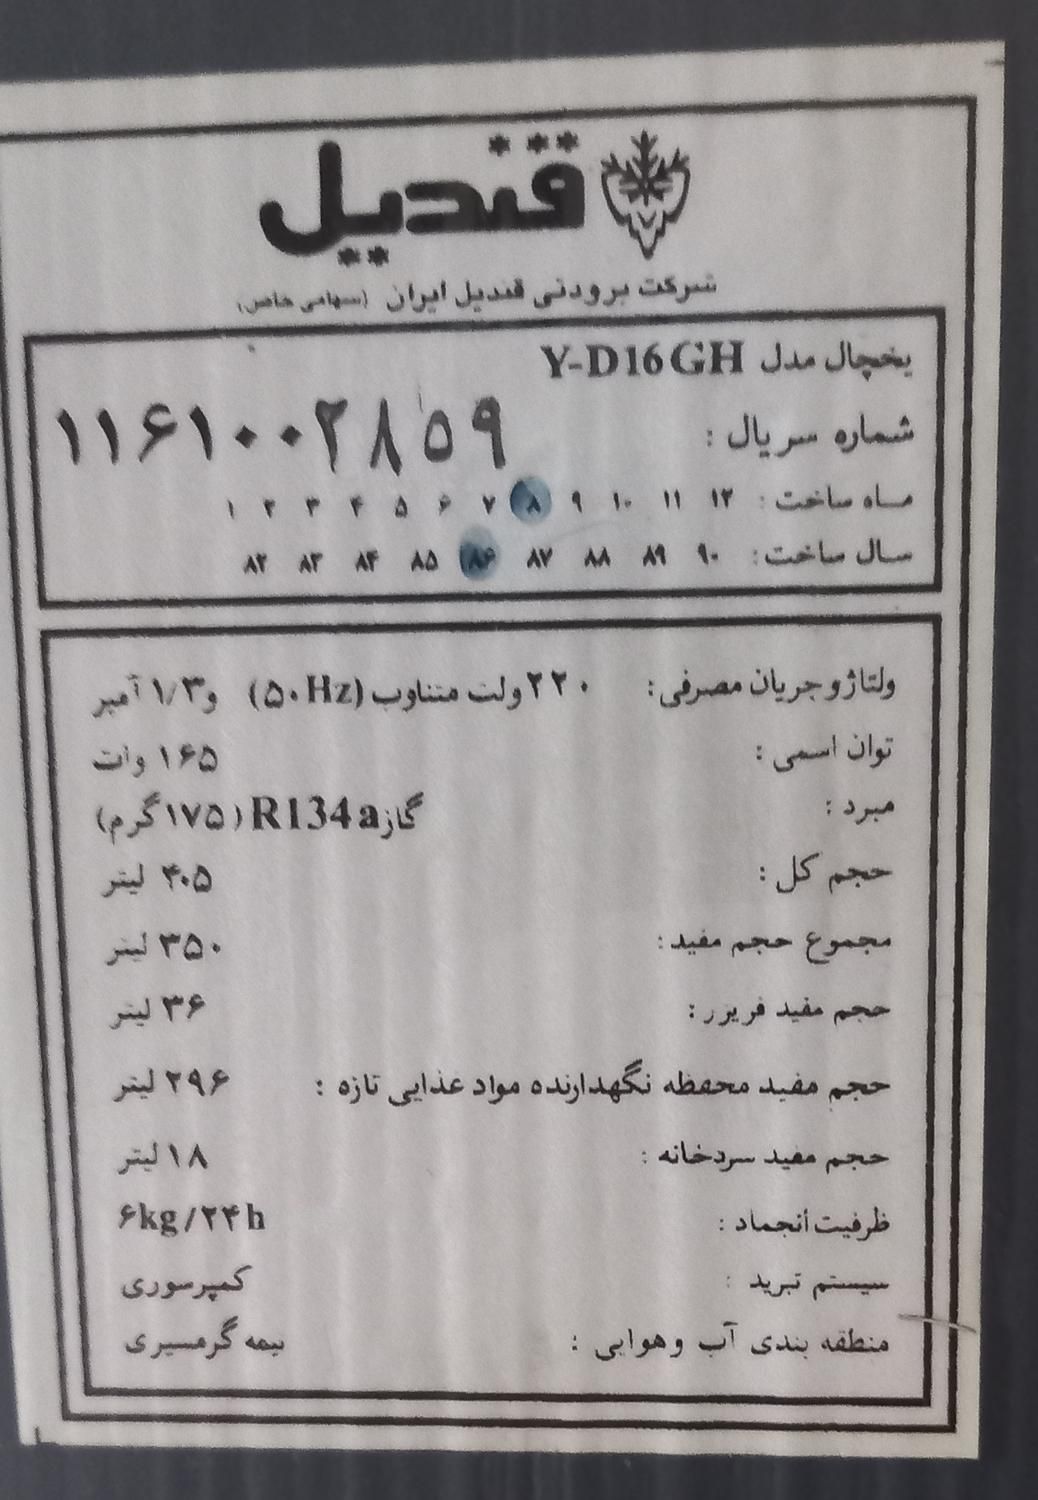 قندیل
شرکت برودتی قندیل ایران (سهامی خاص)
یخچال مدل Y-D16GH
شماره سریال : ۱۱۶۱۰۰۲۸۵۹
ماه ساخت : ۱۲ ۱۱ ۱۰ ۹ ۸ ۷ ۶ ۵ ۴ ۳ ۲ ۱
سال ساخت : ۹۰ ۸۹ ۸۸ ۸۷ ۸۶ ۸۵ ۸۴ ۸۳ ۸۲
ولتاژ و جریان مصرفی: ۲۲۰ ولت متناوب (۵۰Hz) و ۱/۳ آمپر
توان اسمی : ۱۶۵ وات
مبرد : گاز R134a (۱۷۵ گرم)
حجم کل : ۴۰۵ لیتر
مجموع حجم مفید : ۳۵۰ لیتر
حجم مفید فریزر : ۳۶ لیتر
حجم مفید محفظه نگهدارنده مواد غذایی تازه : ۲۹۶ لیتر
حجم مفید سردخانه : ۱۸ لیتر
ظرفیت انجماد : ۶kg/۲۴h
سیستم تبرید : کمپرسوری
منطقه بندی آب و هوایی : نیمه گرمسیری